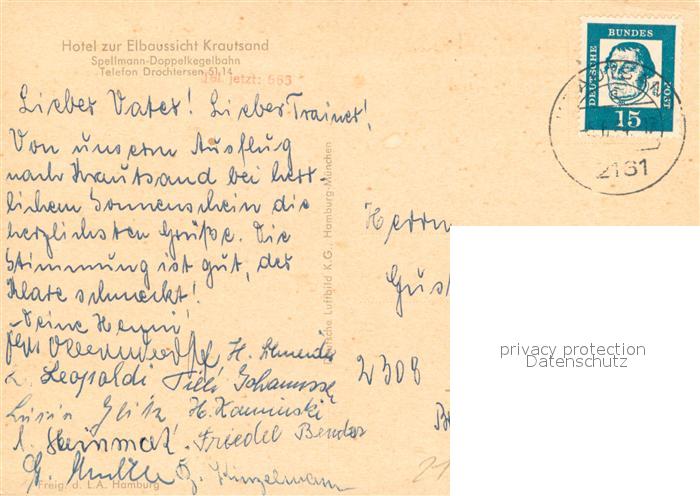 Hotel zur Elbaussicht Krautsand
Spellmann-Doppelkegelbahn
Telefon Drochtersen 51,14
Tel. jetzt: 563
DEUTSCHE BUNDES POST
15
2161
Lieber Vater! Lieber Trainer!
Von unserm Ausflug
nach Krautsand bei herr-
lichem Sonnenschein die
herzlichsten Grüße. Die
Stimmung ist gut, der
Klare schmeckt!
Deine Henni
H. Schneider
L. Leopoldi Tilli
H. Kaminski
Friedel Bender
Kinzelmann
Freig. d. L.A. Hamburg
Deutsche Luftbild K.G., Hamburg-München
Herrn
Gust
2308
privacy protection
Datenschutz